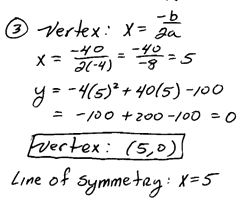 ③ Vertex: x = -b/2a
x = -40/2(-4) = -40/-8 = 5
y = -4(5)² + 40(5) - 100
= -100 + 200 - 100 = 0
Vertex: (5,0)
Line of symmetry: x = 5